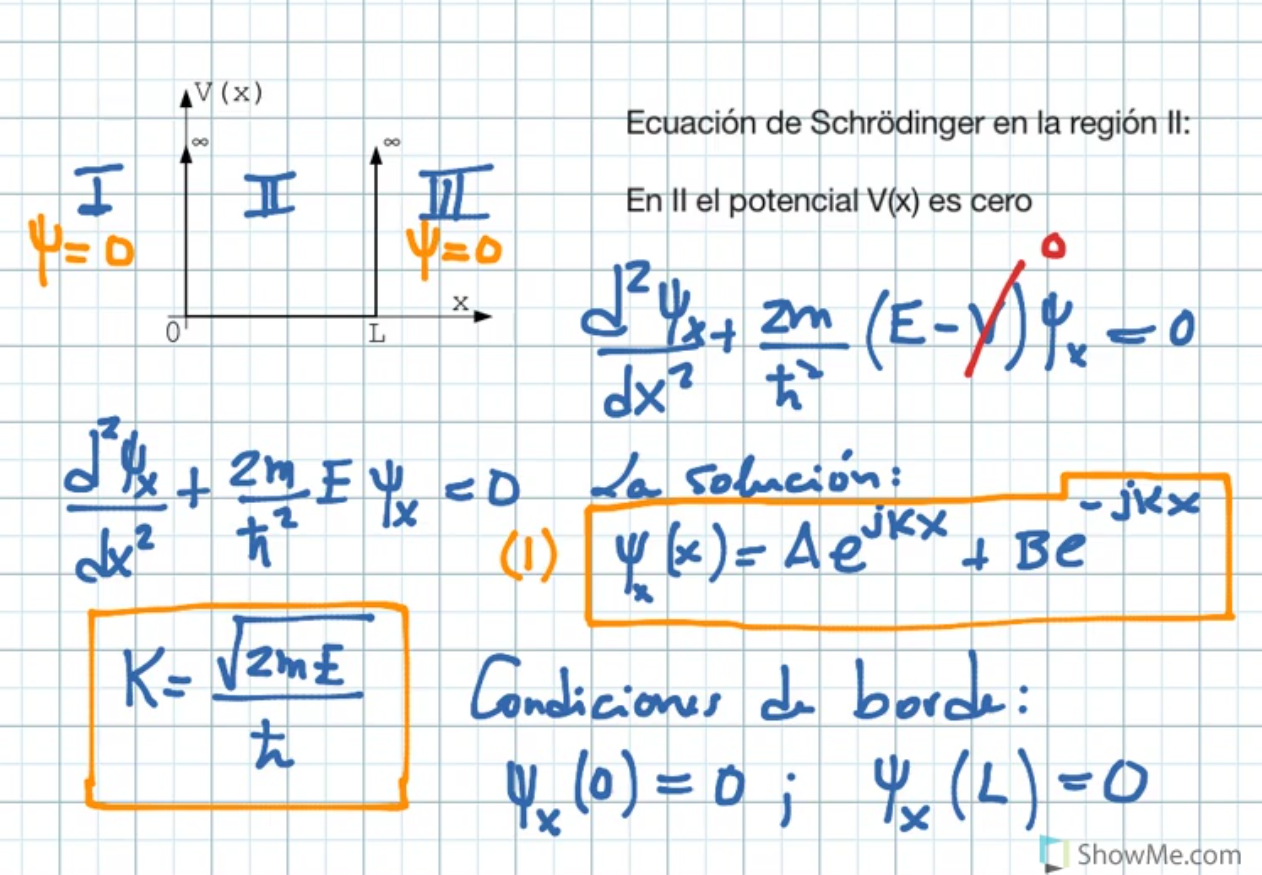 V(x)
∞ ∞
I II III
ψ=0 ψ=0
x
0 L
Ecuación de Schrödinger en la región II:
En II el potencial V(x) es cero
0
d²ψₓ/dx² + 2m/ħ² (E-V)ψₓ = 0
d²ψₓ/dx² + 2m/ħ² E ψₓ = 0
La solución:
(1) ψₓ(x) = Ae^{jKx} + Be^{-jKx}
K = √(2mE)/ħ
Condiciones de borde:
ψₓ(0) = 0 ; ψₓ(L) = 0
ShowMe.com